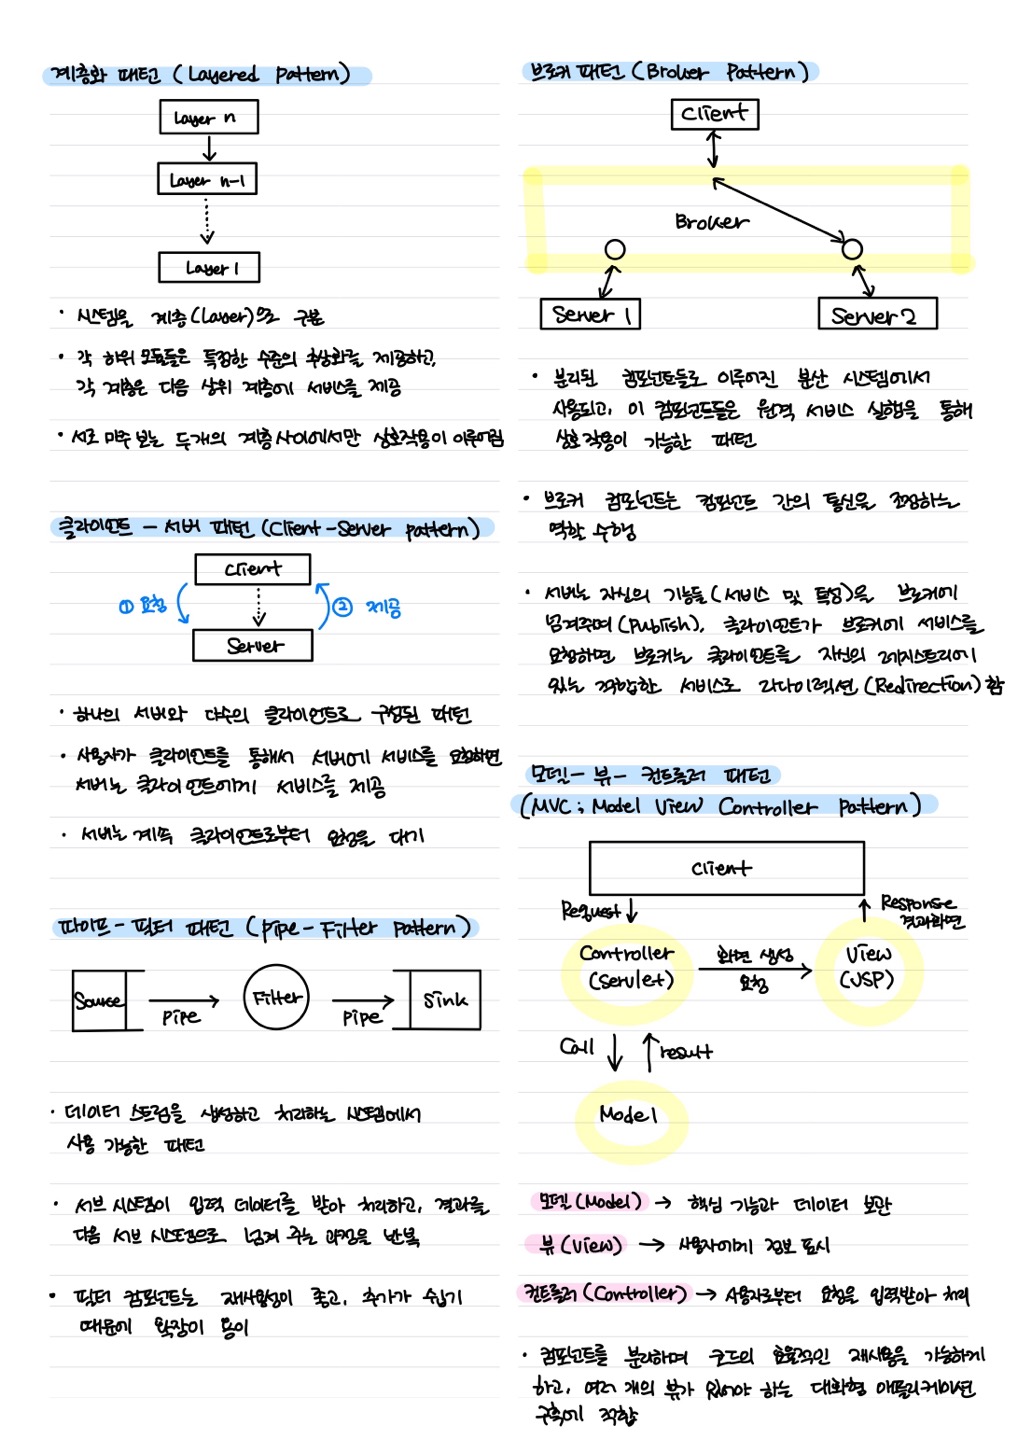 계층화 패턴 (Layered Pattern)
Layer n
Layer n-1
Layer 1
· 시스템을 계층(Layer)으로 구분
· 각 하위 모듈들은 특정한 수준의 추상화를 제공하고,
각 계층은 다음 상위 계층에 서비스를 제공
· 서로 마주 보는 두개의 계층 사이에서만 상호작용이 이루어짐
클라이언트 - 서버 패턴 (Client-Server pattern)
Client
① 요청
② 제공
Server
· 하나의 서버와 다수의 클라이언트로 구성된 패턴
· 사용자가 클라이언트를 통해서 서버에 서비스를 요청하면
서버는 클라이언트에게 서비스를 제공
· 서버는 계속 클라이언트로부터 요청을 대기
파이프 - 필터 패턴 (Pipe-Filter Pattern)
Source
Pipe
Filter
Pipe
Sink
· 데이터 스트림을 생성하고 처리하는 시스템에서
사용 가능한 패턴
· 서브 시스템이 입력 데이터를 받아 처리하고, 결과를
다음 서브 시스템으로 넘겨 주는 과정을 반복
· 필터 컴포넌트는 재사용성이 좋고, 추가가 쉽기
때문에 확장이 용이
브로커 패턴 (Broker Pattern)
Client
Broker
Server 1
Server 2
· 분리된 컴포넌트들로 이루어진 분산 시스템에서
사용되고, 이 컴포넌트들은 원격 서비스 실행을 통해
상호작용이 가능한 패턴
· 브로커 컴포넌트는 컴포넌트 간의 통신을 조정하는
역할 수행
· 서버는 자신의 기능들(서비스 및 특성)을 브로커에
넘겨주며(Publish), 클라이언트가 브로커에 서비스를
요청하면 브로커는 클라이언트를 자신의 레지스트리에
있는 적합한 서비스로 리다이렉션(Redirection)함
모델 - 뷰 - 컨트롤러 패턴
(MVC ; Model View Controller Pattern)
Client
Request
Response
결과화면
Controller
(Servlet)
화면 생성
요청
View
(JSP)
Call
result
Model
모델(Model) → 핵심 기능과 데이터 보관
뷰(View) → 사용자에게 정보 표시
컨트롤러(Controller) → 사용자로부터 요청을 입력받아 처리
· 컴포넌트를 분리하며 코드의 효율적인 재사용을 가능하게
하고, 여러 개의 뷰가 있어야 하는 대화형 애플리케이션
구축에 적합